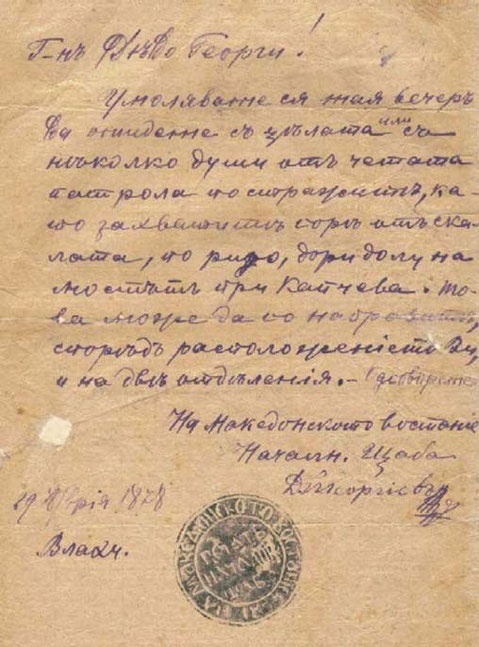 Г-нъ Дѣдо Георги!
Умолявате ся тая вечеръ
да отидете съ цѣлата или съ
нѣколко души отъ четата
патрола по стражитѣ, ка-
то захватите горѣ отъ ска-
лата, по ридо, дори долу на
мостътъ при Капчева. То-
ва може да го направитѣ,
споредъ расположението Ви,
и на двѣ отдѣления. –
На Македонското востание
Началн. Щаба
Д. Георгиевъ
29 1878
Влахи.